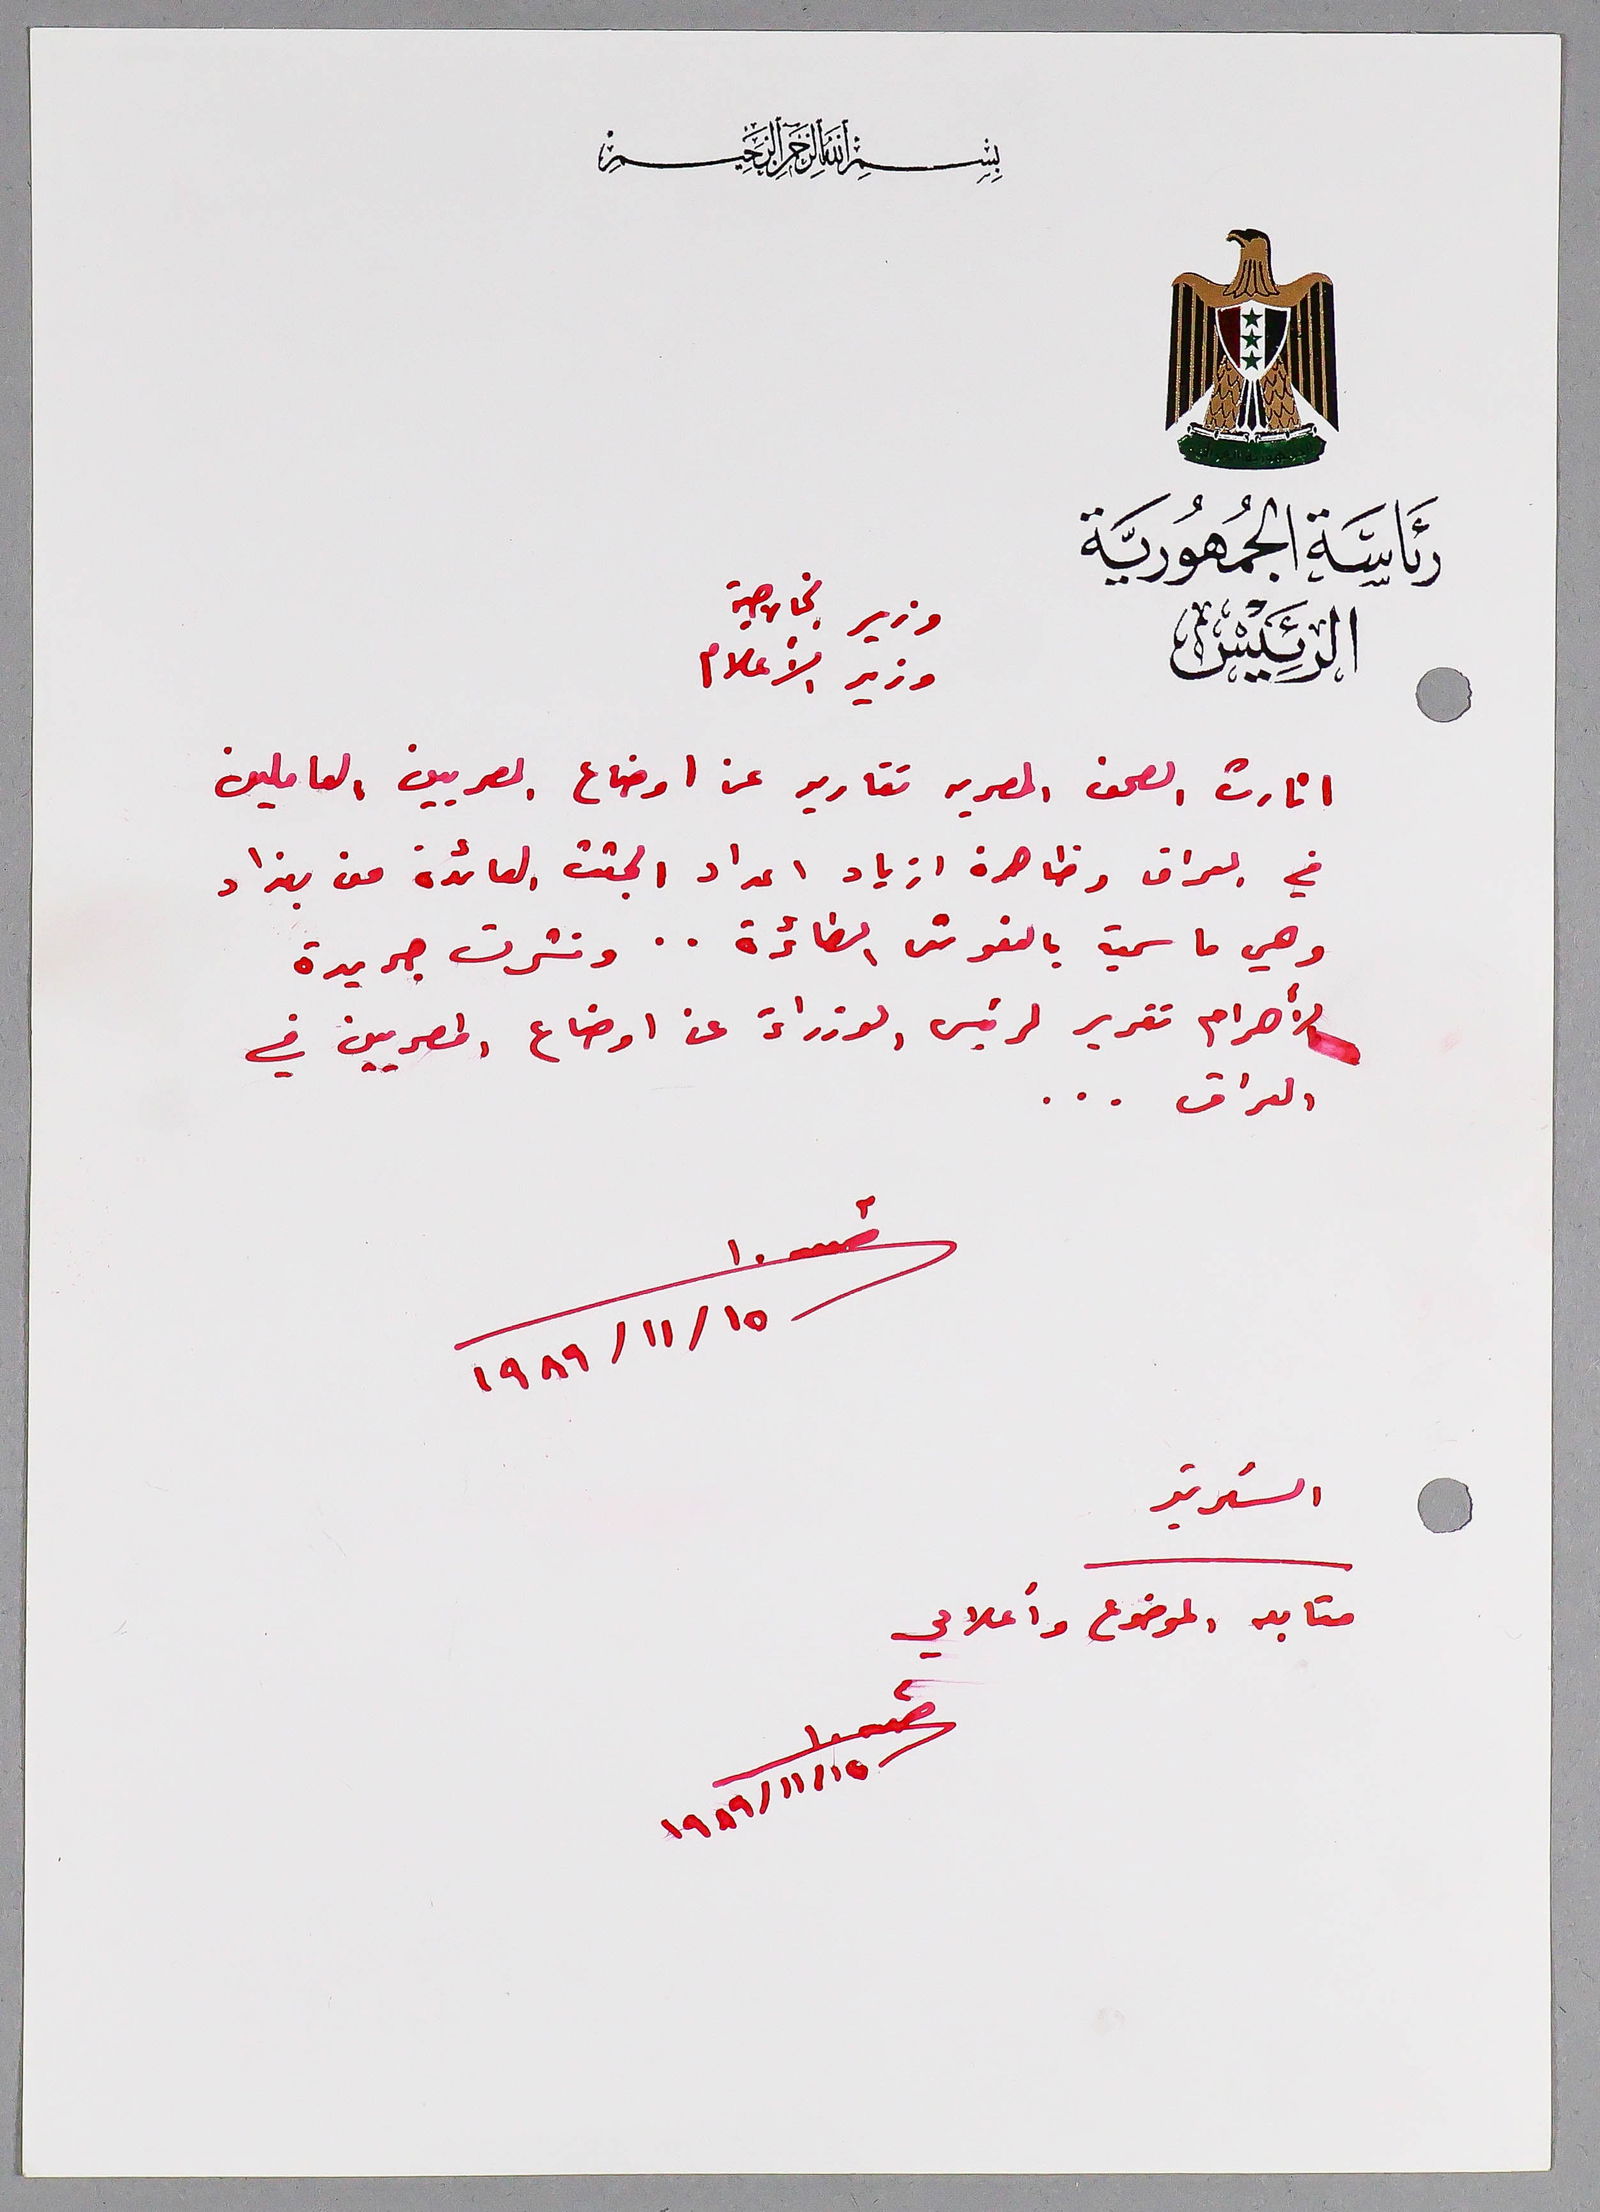 بسم الله الرحمن الرحيم
رئاسة الجمهورية
الرئيس
وزير الخارجية
وزير الأعلام
اثارت الصحف المصريه تقارير عن اوضاع المصريين العاملين
في العراق وظاهرة ازياد اعداد الجثث العائدة من بغداد
وهي ما سمية بالنعوش الطائرة .. ونشرت جريدة
الأهرام تقرير لرئيس الوزراء عن اوضاع المصريين في
العراق ...
١٥/١١/١٩٨٩
السكرتير
متابعه الموضوع وأعلامي
١٥/١١/١٩٨٩